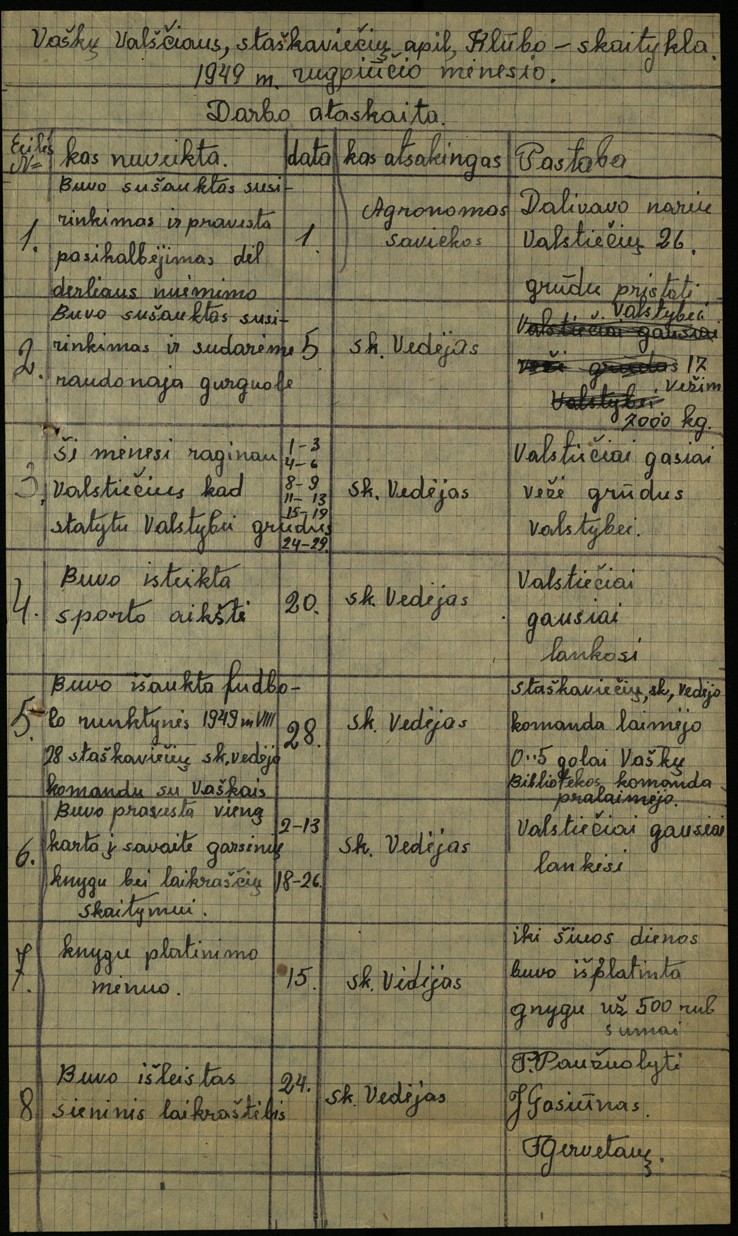 Vaškų Valščiaus, staškaviečių apil, Klūbo – skaitykla.
1949 m. rugpiūčio mėnesio.
Darbo ataskaita.
Eilės
N=
kas nuveikta.
data
kas atsakingas
Pastaba
1.
Buvo sušauktas susi-
rinkimas ir pravesta
pasikalbėjimas dėl
derliaus nuėmimo
1.
Agronomas
saviekos
Dalivavo
Valstiečių 26.
grūdu pristati
2.
Buvo sušauktas susi-
rinkimas ir sudarėme
raudonaja gurguole
5
sk. Vedėjas
Valstybei
Valstiečiai gausiai
veži grudas 17
Valstybei vežim
7000 kg.
3.
Ši mėnesi raginau
Valstiečius kad
statytu Valstybei grūdus
1–3
4–6
8–9
11–13
15–19
24–29.
sk. Vedėjas
Valstiečiai gasiai
vežė grūdus
valstybei.
4.
Buvo isteikta
sporto aikšti
20.
sk. Vedėjas
Valstiečiai
gausiai
lankosi
5.
Buvo išaukta fudbo-
lo runktynės 1949 m VIII
28 staškaviečių sk. vedėjo
komandu su Vaškais
28.
sk. Vedėjas
staškaviečių, sk, Vedėjo
komanda laimėjo
0:5 golai Vaškų
Bibliotekos komanda
pralaimėjo.
6.
Buvo pravesta vieną
karta į savaite garsinių
knygu bei laikraščių
skaitymui.
2–13
18–26.
sk. Vedėjas
Valstiečiai gausiai
lankėsi
7.
knygu platinimo
mėnuo.
15.
sk. Vėdėjas
iki šiuos dienos
buvo išplatinta
gnygu už 500 rub
sumai
8
Buvo išleistas
sieninis laikraštėlis
24.
sk. Vedėjas
P. Paužuolyti
J Gasiūnas.